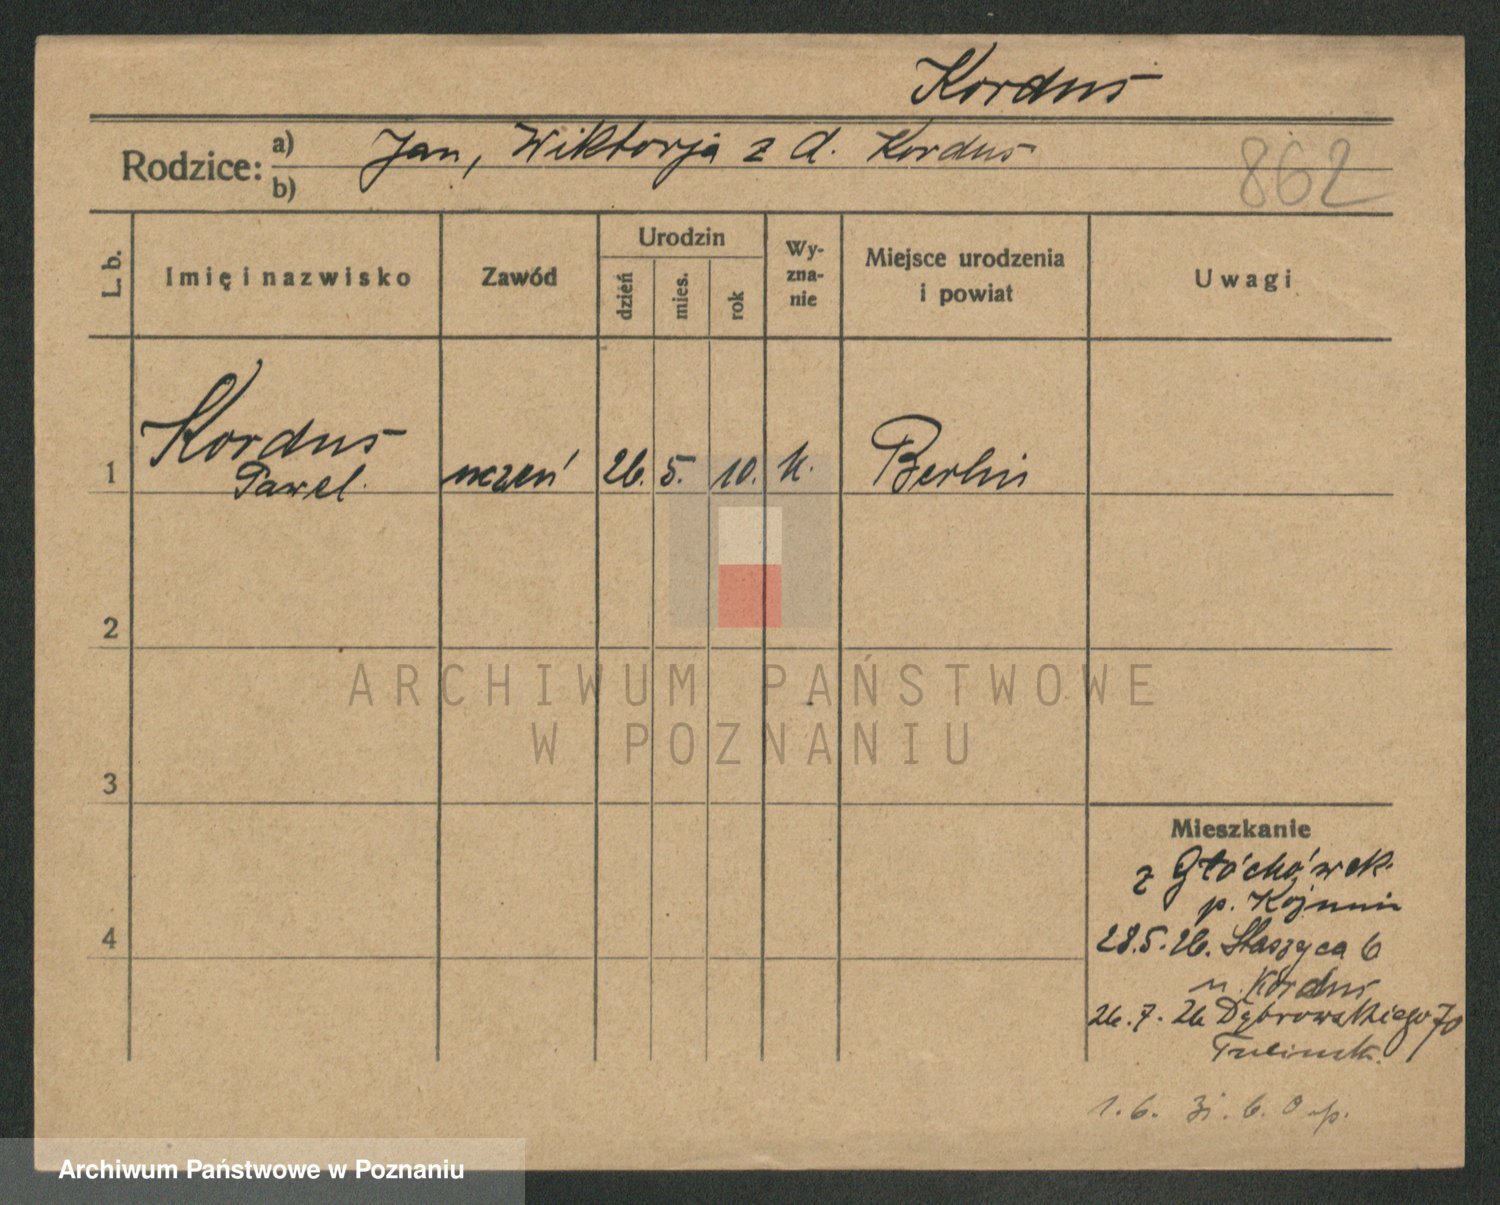 Kordus
Rodzice: a) Jan, Wiktorja z d. Kordus
b)
862
L. b.
Imię i nazwisko
Zawód
Urodzin
dzień
mies.
rok
Wy-
zna-
nie
Miejsce urodzenia
i powiat
Uwagi
1 Kordus
Paweł. uczeń 26. 5. 10. k. Berlin
2
3
4
ARCHIWUM PAŃSTWOWE
W POZNANIU
Mieszkanie
z
p.
28.5.26. Staszyca 6
u. Kordus
26.7.26 Dąbrowskiego 70
Archiwum Państwowe w Poznaniu